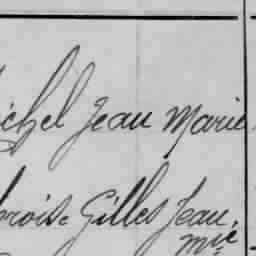 ichel Jean Marie
broise Gilles Jean
Mie